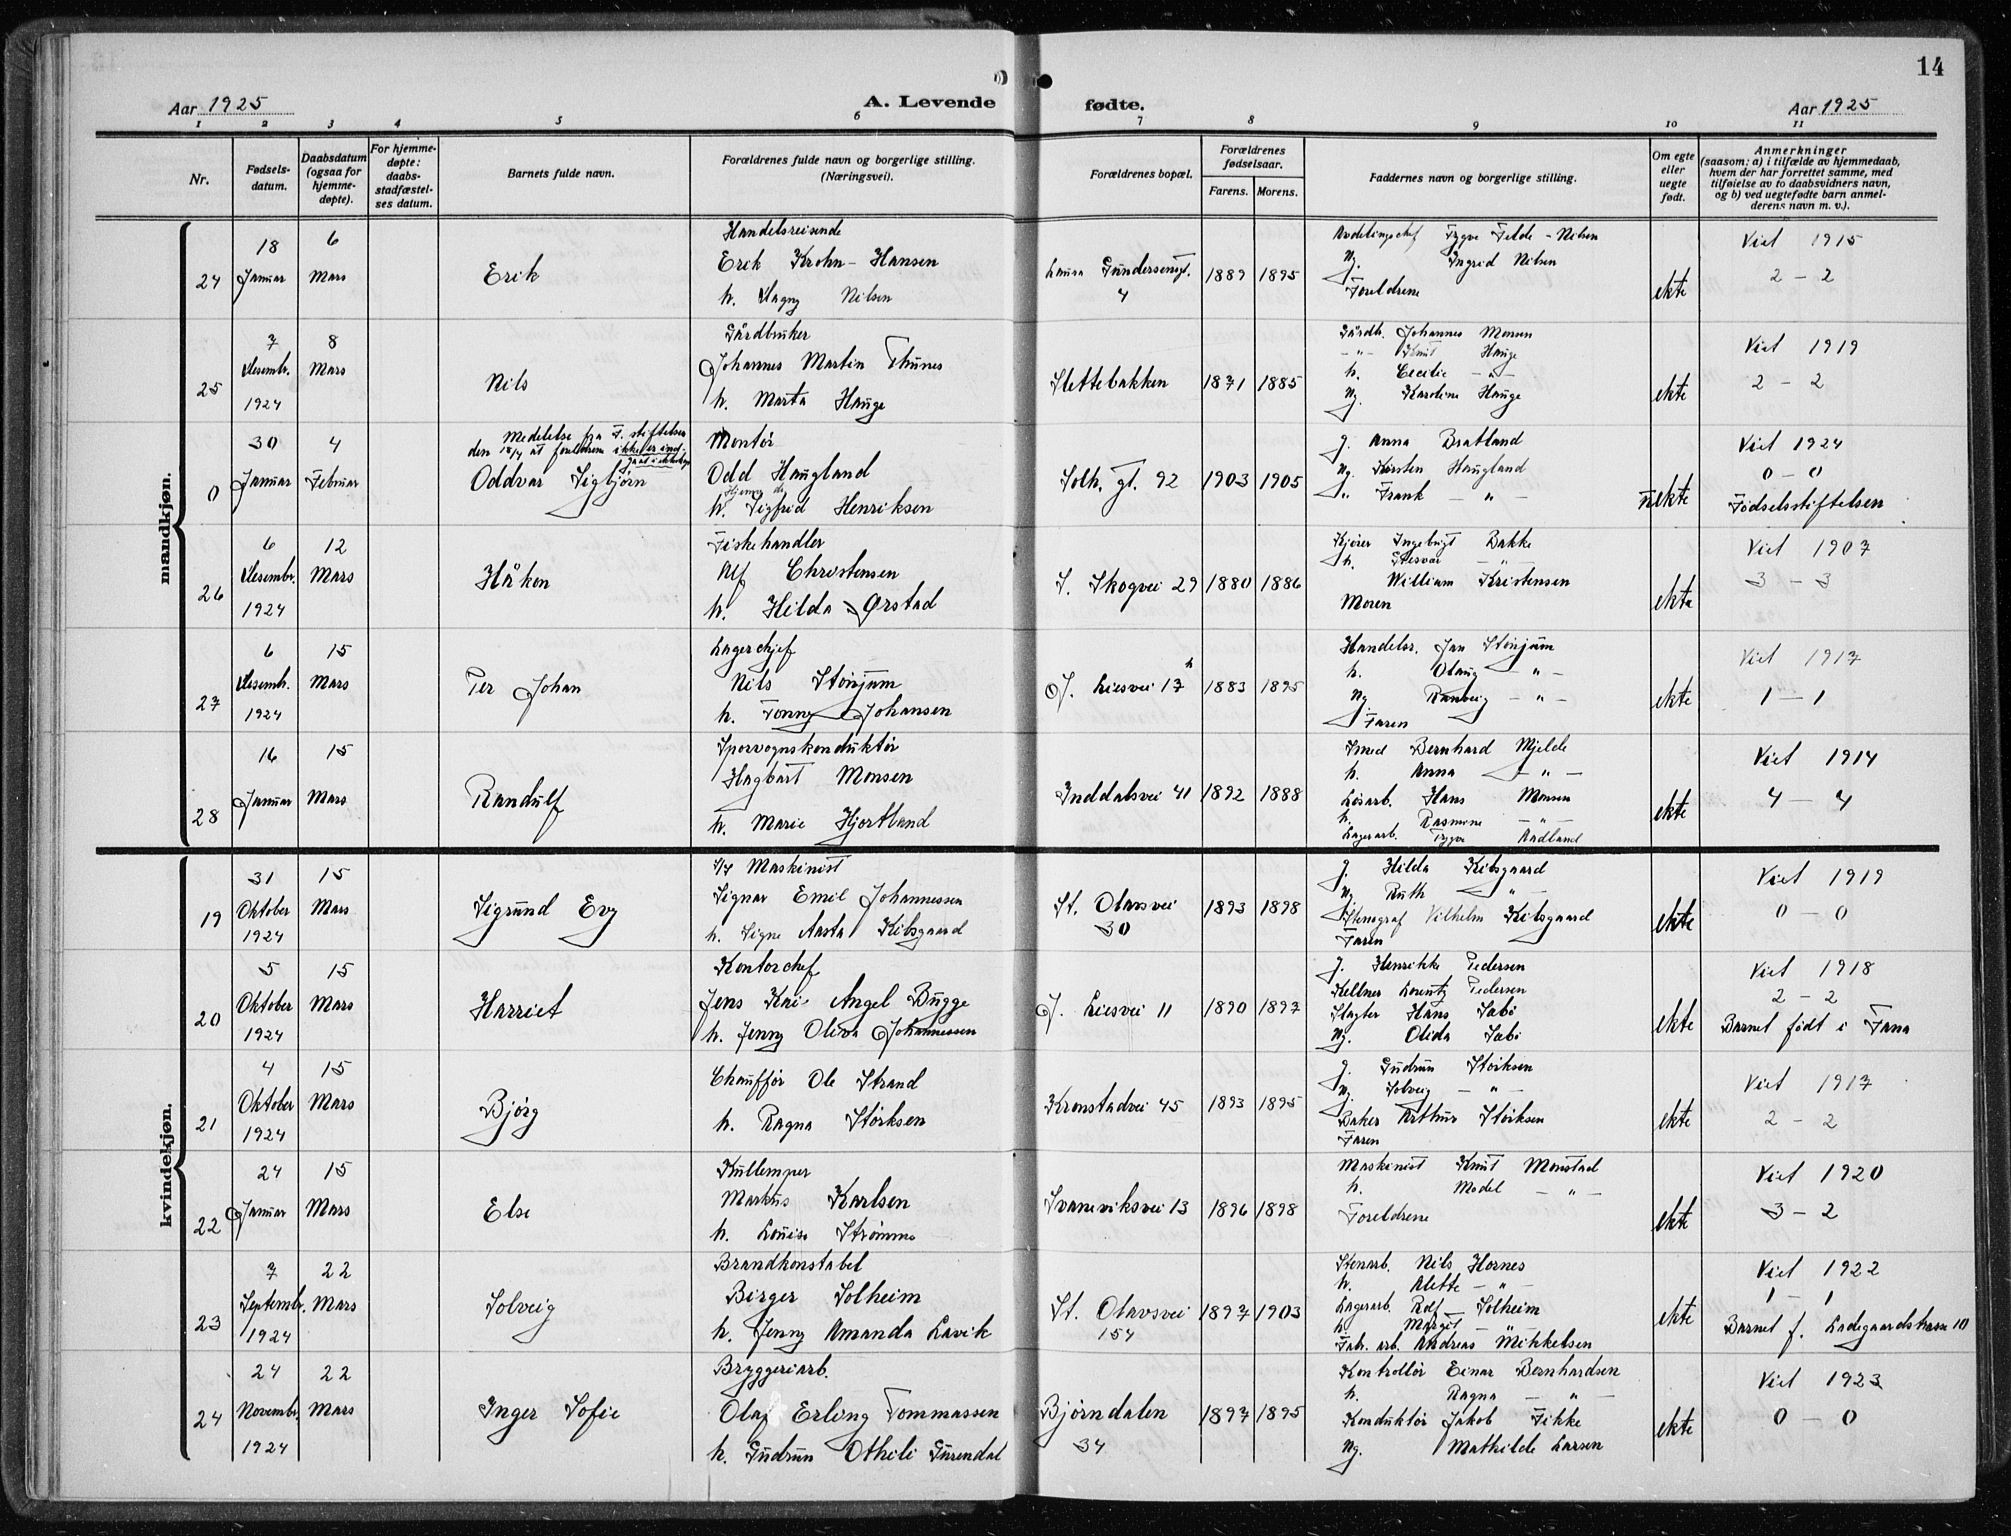 14
Aar 1925
A. Levende
fødte.
Aar 1925
1 2 3 4 5 6 7 8 9 10 11
Nr.
Fødsels-
datum.
Daabsdatum
(ogsaa for
hjemme-
døpte).
For hjemme-
døpte:
daabs-
stadfæstel-
ses datum.
Barnets fulde navn.
Forældrenes fulde navn og borgerlige stilling.
(Næringsvei).
Forældrenes bopæl.
Forældrenes
fødselsaar.
Farens. Morens.
Faddernes navn og borgerlige stilling.
Om egte
eller
uegte
født.
Anmerkninger
(saasom: a) i tilfælde av hjemmedaab,
hvem der har forrettet samme, med
tilføielse av to daabsvidners navn,
og b) ved uegtefødte barn anmel-
derens navn m. v.).
mandkjøn.
24
18
Januar
6
Mars
Erik
Handelsreisende
Erik Krohn-Hansen
h. Dagny Nilsen
Laura Gundersensgt.
4
1889 1895
Avdelingschef Trygve Felde-Nilsen
Ug. Ingrid Nilsen
Foreldrene
ekte
Viet 1915
2 - 2
25
7
Desembr.
1924
8
Mars
Nils
Gårdbruker
Johannes Martin Thunes
h. Marta Hauge
Slettebakken
1871 1885
Gårdb. Johannes Monsen
-"- Knut Hauge
h. Cecilie -"-
Ug. Karoline Hauge
ekte
Viet 1919
2 - 2
0
30
Januar
4
Februar
Medelelse fra F. stiftelsen
den 18/4 at foreldrene ikke er ind-
gaat i ekteskap
Oddvar Sigbjørn
Montør
Odd Haugland
h. Sigfrid Henriksen
Solh. gt. 92
1903 1905
J. Anna Bratland
Ug. Kirsten Haugland
" Frank - " -
Uekte
Viet 1924
0 - 0
Fødselsstiftelsen
26
6
Desembr.
1924
12
Mars
Håkon
Fiskehandler
Alf Christensen
h. Hilda Ørstad
S. Skogvei 29
1880 1886
Kjører Ingebrigt Bakke
h. - " -
William Kristensen
Moren
ekte
Viet 1907
3 - 3
27
6
Desemb.
1924
15
Mars
Per Johan
Lagerchef
Nils Stønjum
h. Tonny Johansen
J. Liesvei 17 h
1883 1895
Handelsr. Jan Stønjum
h. Olaug - " -
Ug. Ranveig - " -
Faren
ekte
Viet 1917
1 - 1
28
16
Januar
15
Mars
Randulf
Sporvognskonduktør
Hagbart Monsen
h. Marie Hjortland
Inddalsvei 41
1892 1888
Smed Bernhard Mjelde
h. Anna - " -
Løsarb. Hans Monsen
h. Rasmine - " -
Lagerarb. Trygve Radland
ekte
Viet 1914
4 - 4
kvindekjøn.
19
31
Oktober
1924
15
Mars
Sigrund Evy
Maskinist
Signar Emil Johannessen
h. Signe Aasta Kibsgaard
St. Olavsvei
30
1893 1898
J. Hilda Kibsgaard
Ug. Ruth "
Stenograf Vilhelm Kibsgaard
Faren
ekte
Viet 1919
0 - 0
20
5
Oktober
1924
15
Mars
Harriet
Kontorchef
Jens Kai Angel Bugge
h. Jenny Oliva Johannessen
J. Liesvei 11
1890 1897
J. Henrikke Pedersen
Kellner Lorentz Pedersen
Slagter Hans Sæbø
Ug. Olida Sæbø
ekte
Viet 1918
2 - 2
Barnet født i Fana
21
4
Oktober
1924
15
Mars
Bjørg
Chauffør Ole Strand
h. Ragna Størksen
Kronstadvei 45
1893 1895
J. Gudrun Størksen
Ug. Solveig - " -
Baker Arthur Størksen
Faren
ekte
Viet 1917
2 - 2
22
24
Januar
15
Mars
Else
Kullemper
Markus Karlsen
h. Louise Strømme
Svaneviksvei 13
1896 1898
Maskinist Knut Monstad
h. Model - " -
Foreldrene
ekte
Viet 1920
3 - 2
23
7
Septembr.
1924
22
Mars
Solveig
Brandkonstabel
Birger Solheim
h. Jenny Amanda Lavik
St. Olavsvei
154
1897 1903
Stenarb. Nils Hornes
h. Alette - " -
Lagerarb. Rolf Solheim
h. Margit - " -
Fabr. arb. Andreas Mikkelsen
ekte
Viet 1922
1 - 1
Barnet f. Ladegaardshusene 10
24
24
Novembr.
1924
22
Mars
Inger Sofie
Bryggeriarb.
Olaf Erling Tommassen
h. Gudrun Othili Gurendal
Bjørndalen
34
1897 1895
Kontrollør Einar Bernhardsen
h. Ragna - " -
Konduktør Jakob Fikke
Ug. Mathilde Larsen
ekte
Viet 1923
0 - 0